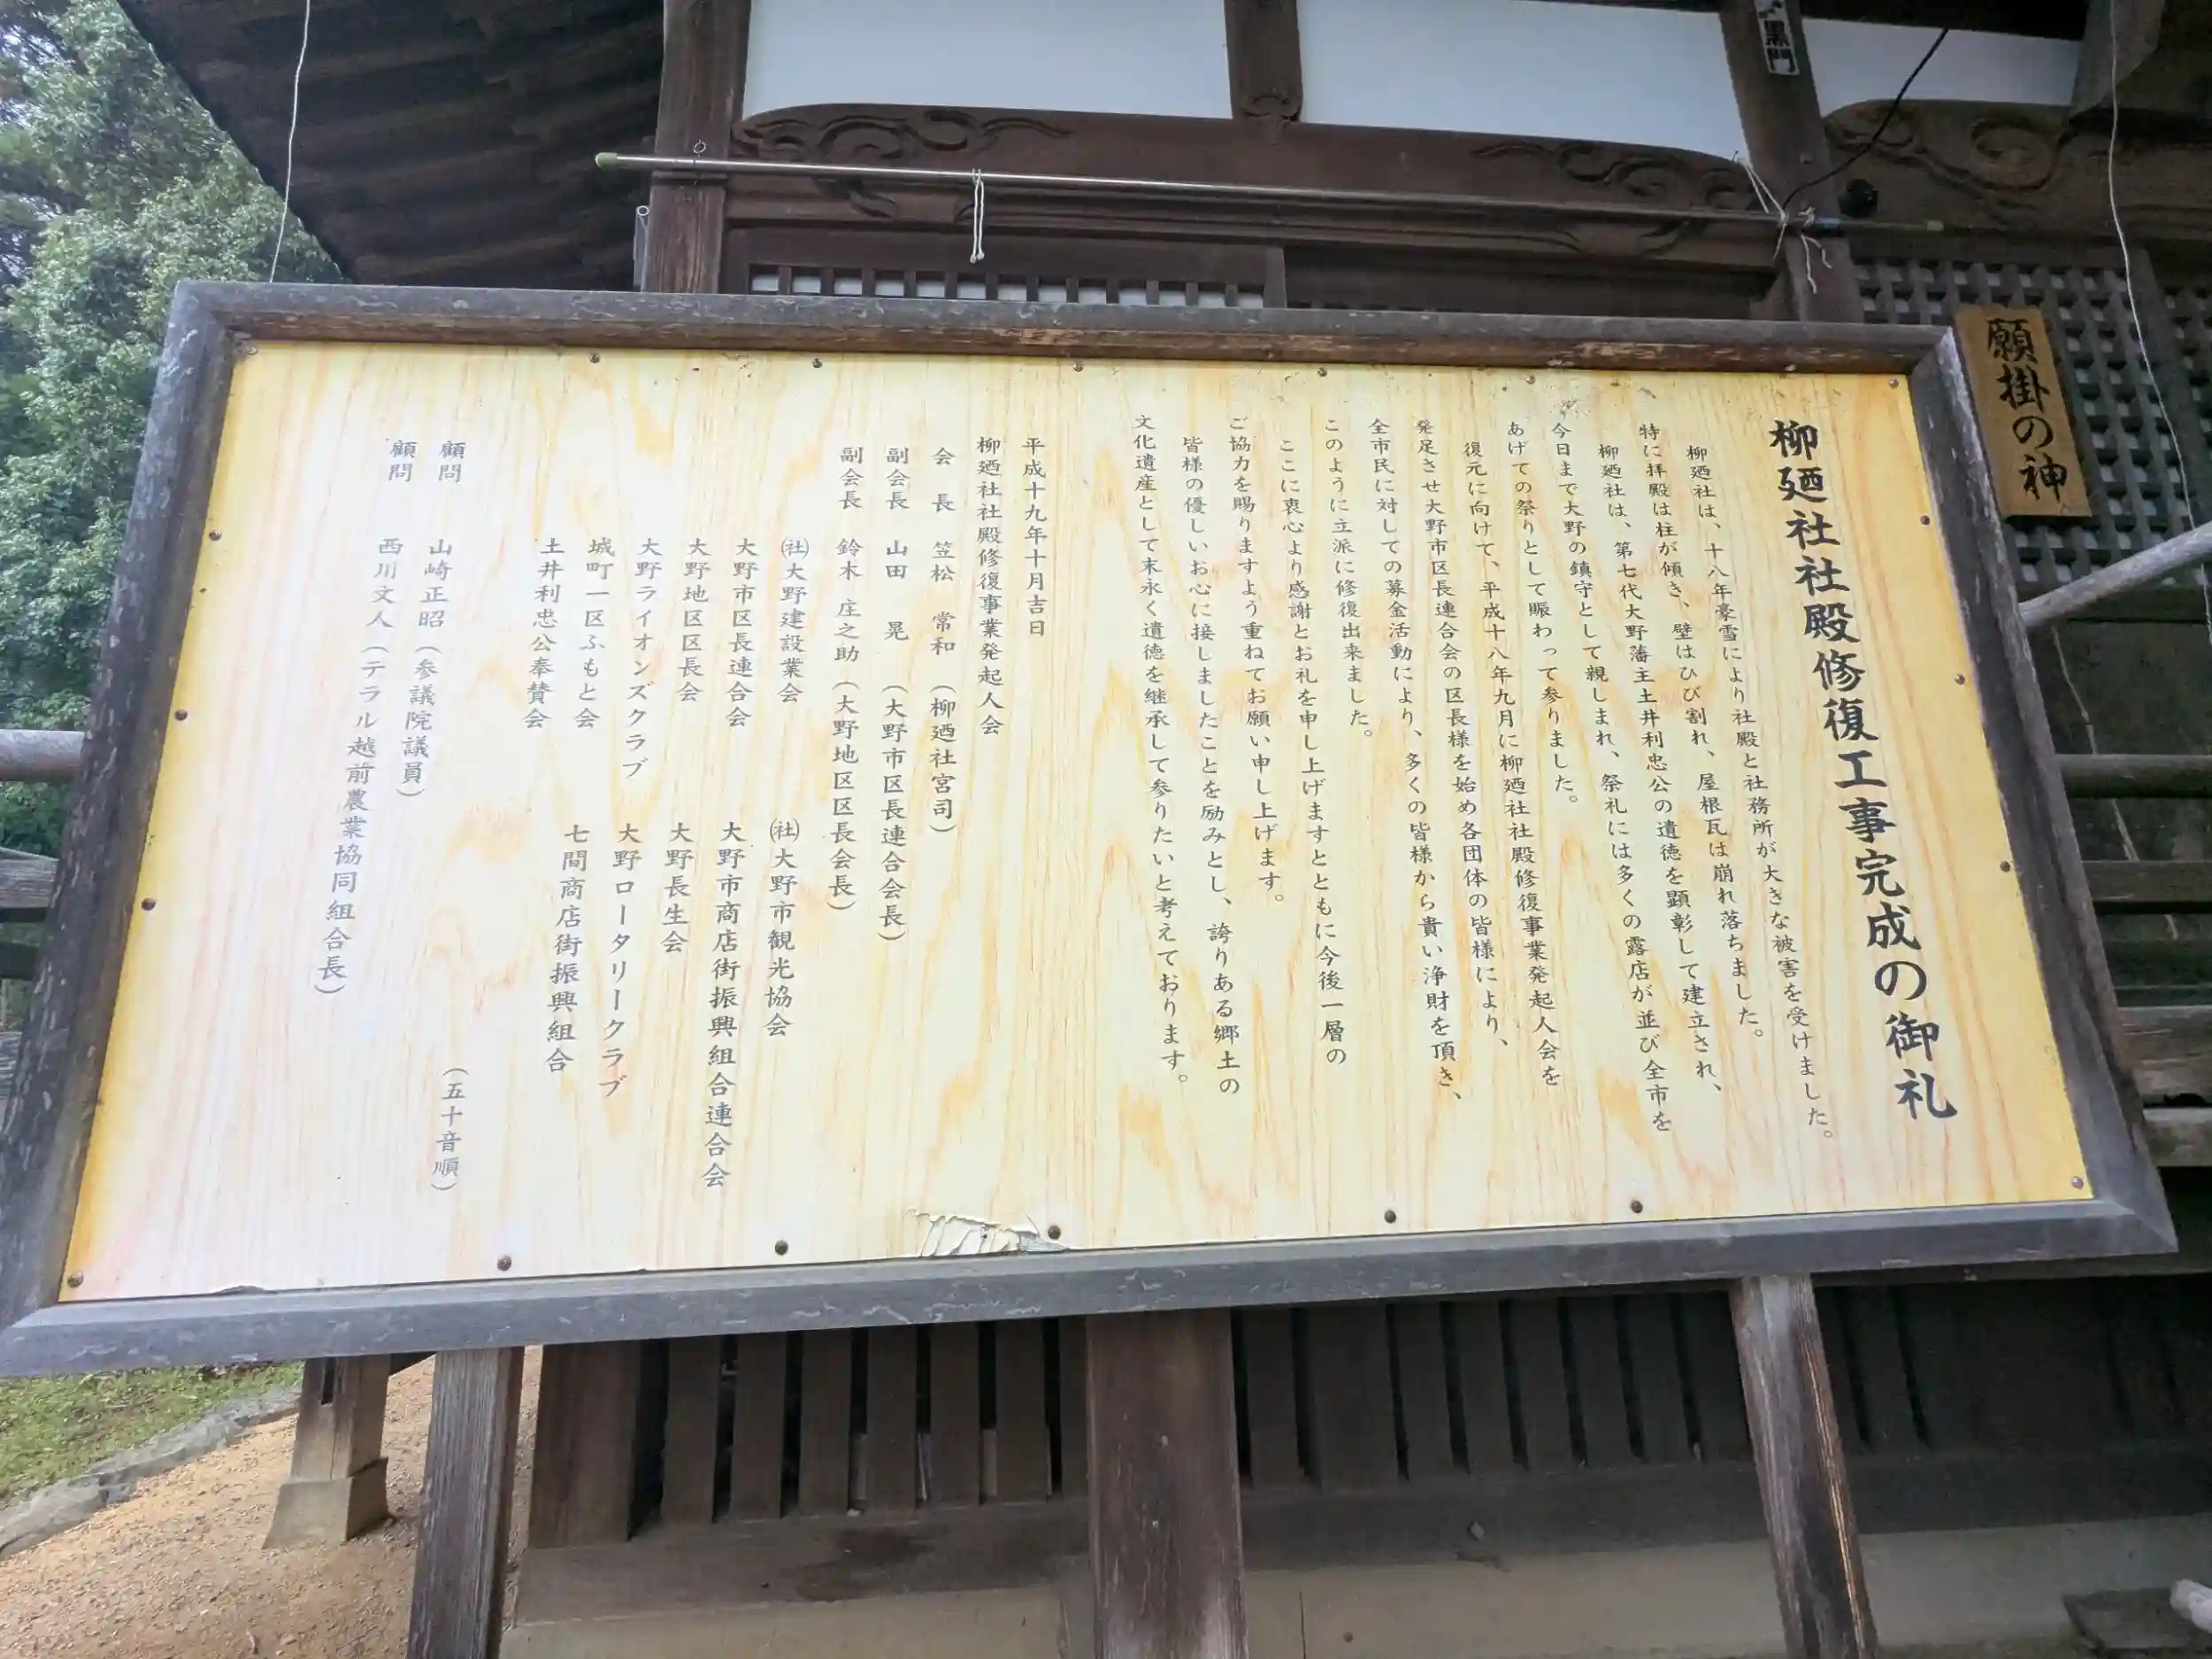 柳廼社社殿修復工事完成の御礼
柳廼社は、十八年豪雪により社殿と社務所が大きな被害を受けました。
特に拝殿は柱が傾き、壁はひび割れ、屋根瓦は崩れ落ちました。
柳廼社は、第七代大野藩主土井利忠公の遺徳を顕彰して建立され、
今日まで大野の鎮守として親しまれ、祭礼には多くの露店が並び全市を
あげての祭りとして賑わって参りました。
復元に向けて、平成十八年九月に柳廼社社殿修復事業発起人会を
発足させ大野市区長連合会の区長様を始め各団体の皆様により、
全市民に対しての募金活動により、多くの皆様から貴い浄財を頂き、
このように立派に修復出来ました。
ここに衷心より感謝とお礼を申し上げますとともに今後一層の
ご協力を賜りますよう重ねてお願い申し上げます。
皆様の優しいお心に接しましたことを励みとし、誇りある郷土の
文化遺産として末永く遺徳を継承して参りたいと考えております。
平成十九年十月吉日
柳廼社社殿修復事業発起人会
会 長 笠松 常和（柳廼社宮司）
副会長 山田 晃（大野市区長連合会長）
副会長 鈴木 庄之助（大野地区区長会長）
㈳大野建設業会 ㈳大野市観光協会
大野市区長連合会 大野市商店街振興組合連合会
大野地区区長会 大野長生会
大野ライオンズクラブ 大野ロータリークラブ
城町一区ふもと会 七間商店街振興組合
土井利忠公奉賛会
（五十音順）
顧問 山崎正昭（参議院議員）
顧問 西川文人（テラル越前農業協同組合長）
願掛の神
黒門